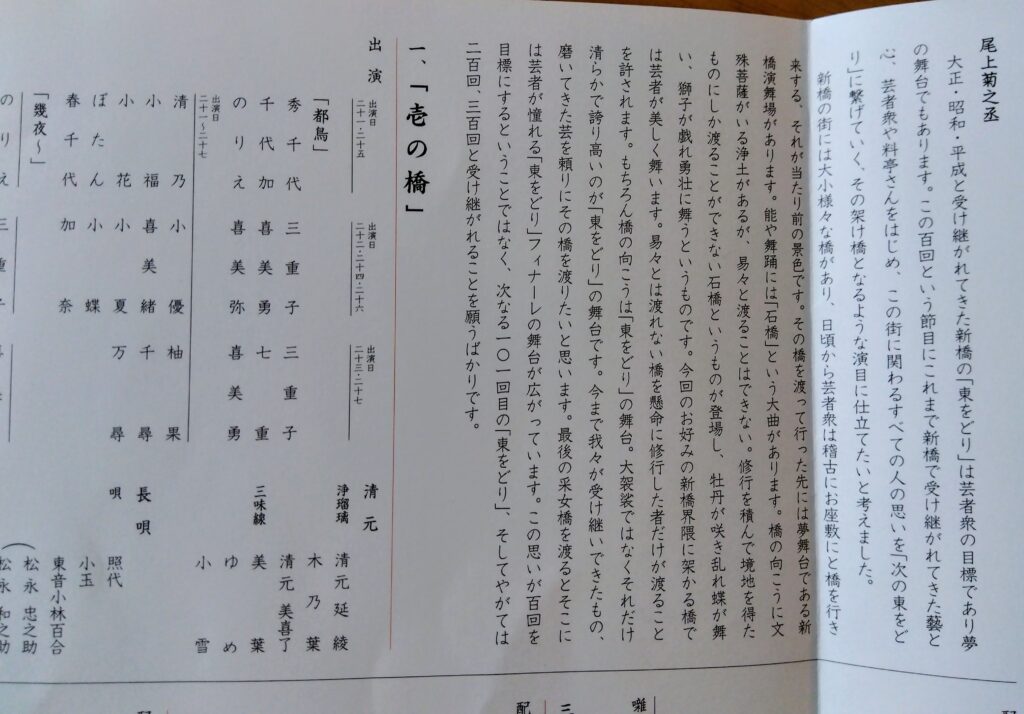 尾上菊之丞
大正・昭和・平成と受け継がれてきた新橋の「東をどり」は芸者衆の目標であり夢
の舞台でもあります。この百回という節目にこれまで新橋で受け継がれてきた藝と
心、芸者衆や料亭さんをはじめ、この街に関わるすべての人の思いを「次の東をど
り」に繋げていく、その架け橋となるような演目に仕立てたいと考えました。
新橋の街には大小様々な橋があり、日頃から芸者衆は稽古にお座敷にと橋を行き
来する、それが当たり前の景色です。その橋を渡って行った先には夢舞台である新
橋演舞場があります。能や舞踊には「石橋」という大曲があります。橋の向こうに文
殊菩薩がいる浄土があるが、易々と渡ることはできない。修行を積んで境地を得た
ものにしか渡ることができない石橋というものが登場し、牡丹が咲き乱れ蝶が舞
い、獅子が戯れ勇壮に舞うというものです。今回のお好みの新橋界隈に架かる橋で
は芸者が美しく舞います。易々とは渡れない橋を懸命に修行した者だけが渡ること
を許されます。もちろん橋の向こうは「東をどり」の舞台。大袈裟ではなくそれだけ
清らかで誇り高いのが「東をどり」の舞台です。今まで我々が受け継いできたもの、
磨いてきた芸を頼りにその橋を渡りたいと思います。最後の采女橋を渡るとそこに
は芸者が憧れる「東をどり」フィナーレの舞台が広がっています。この思いが百回を
目標にするということではなく、次なる一〇一回目の「東をどり」、そしてやがては
二百回、三百回と受け継がれることを願うばかりです。
一、「壱の橋」
出演
出演日
二十一・二十五
出演日
二十二・二十四・二十六
出演日
二十三・二十七
「都鳥」
秀千代 三重子 三重子
千代加 喜美勇 七重
のりえ 喜美弥 喜美勇
出演日
二十一〜二十七
清乃 小優 柚果
小福 喜美緒 千尋
小花 小夏 万尋
ぼたん 小蝶
春千代 加奈
「幾夜〜」
のりえ 三重子
清元
浄瑠璃 清元延綾
木乃葉
清元美喜了
三味線 美葉
ゆめ
小雪
長唄
唄 照代
小玉
東音小林百合
松永忠之助
松永和之助
囃
三
配
配